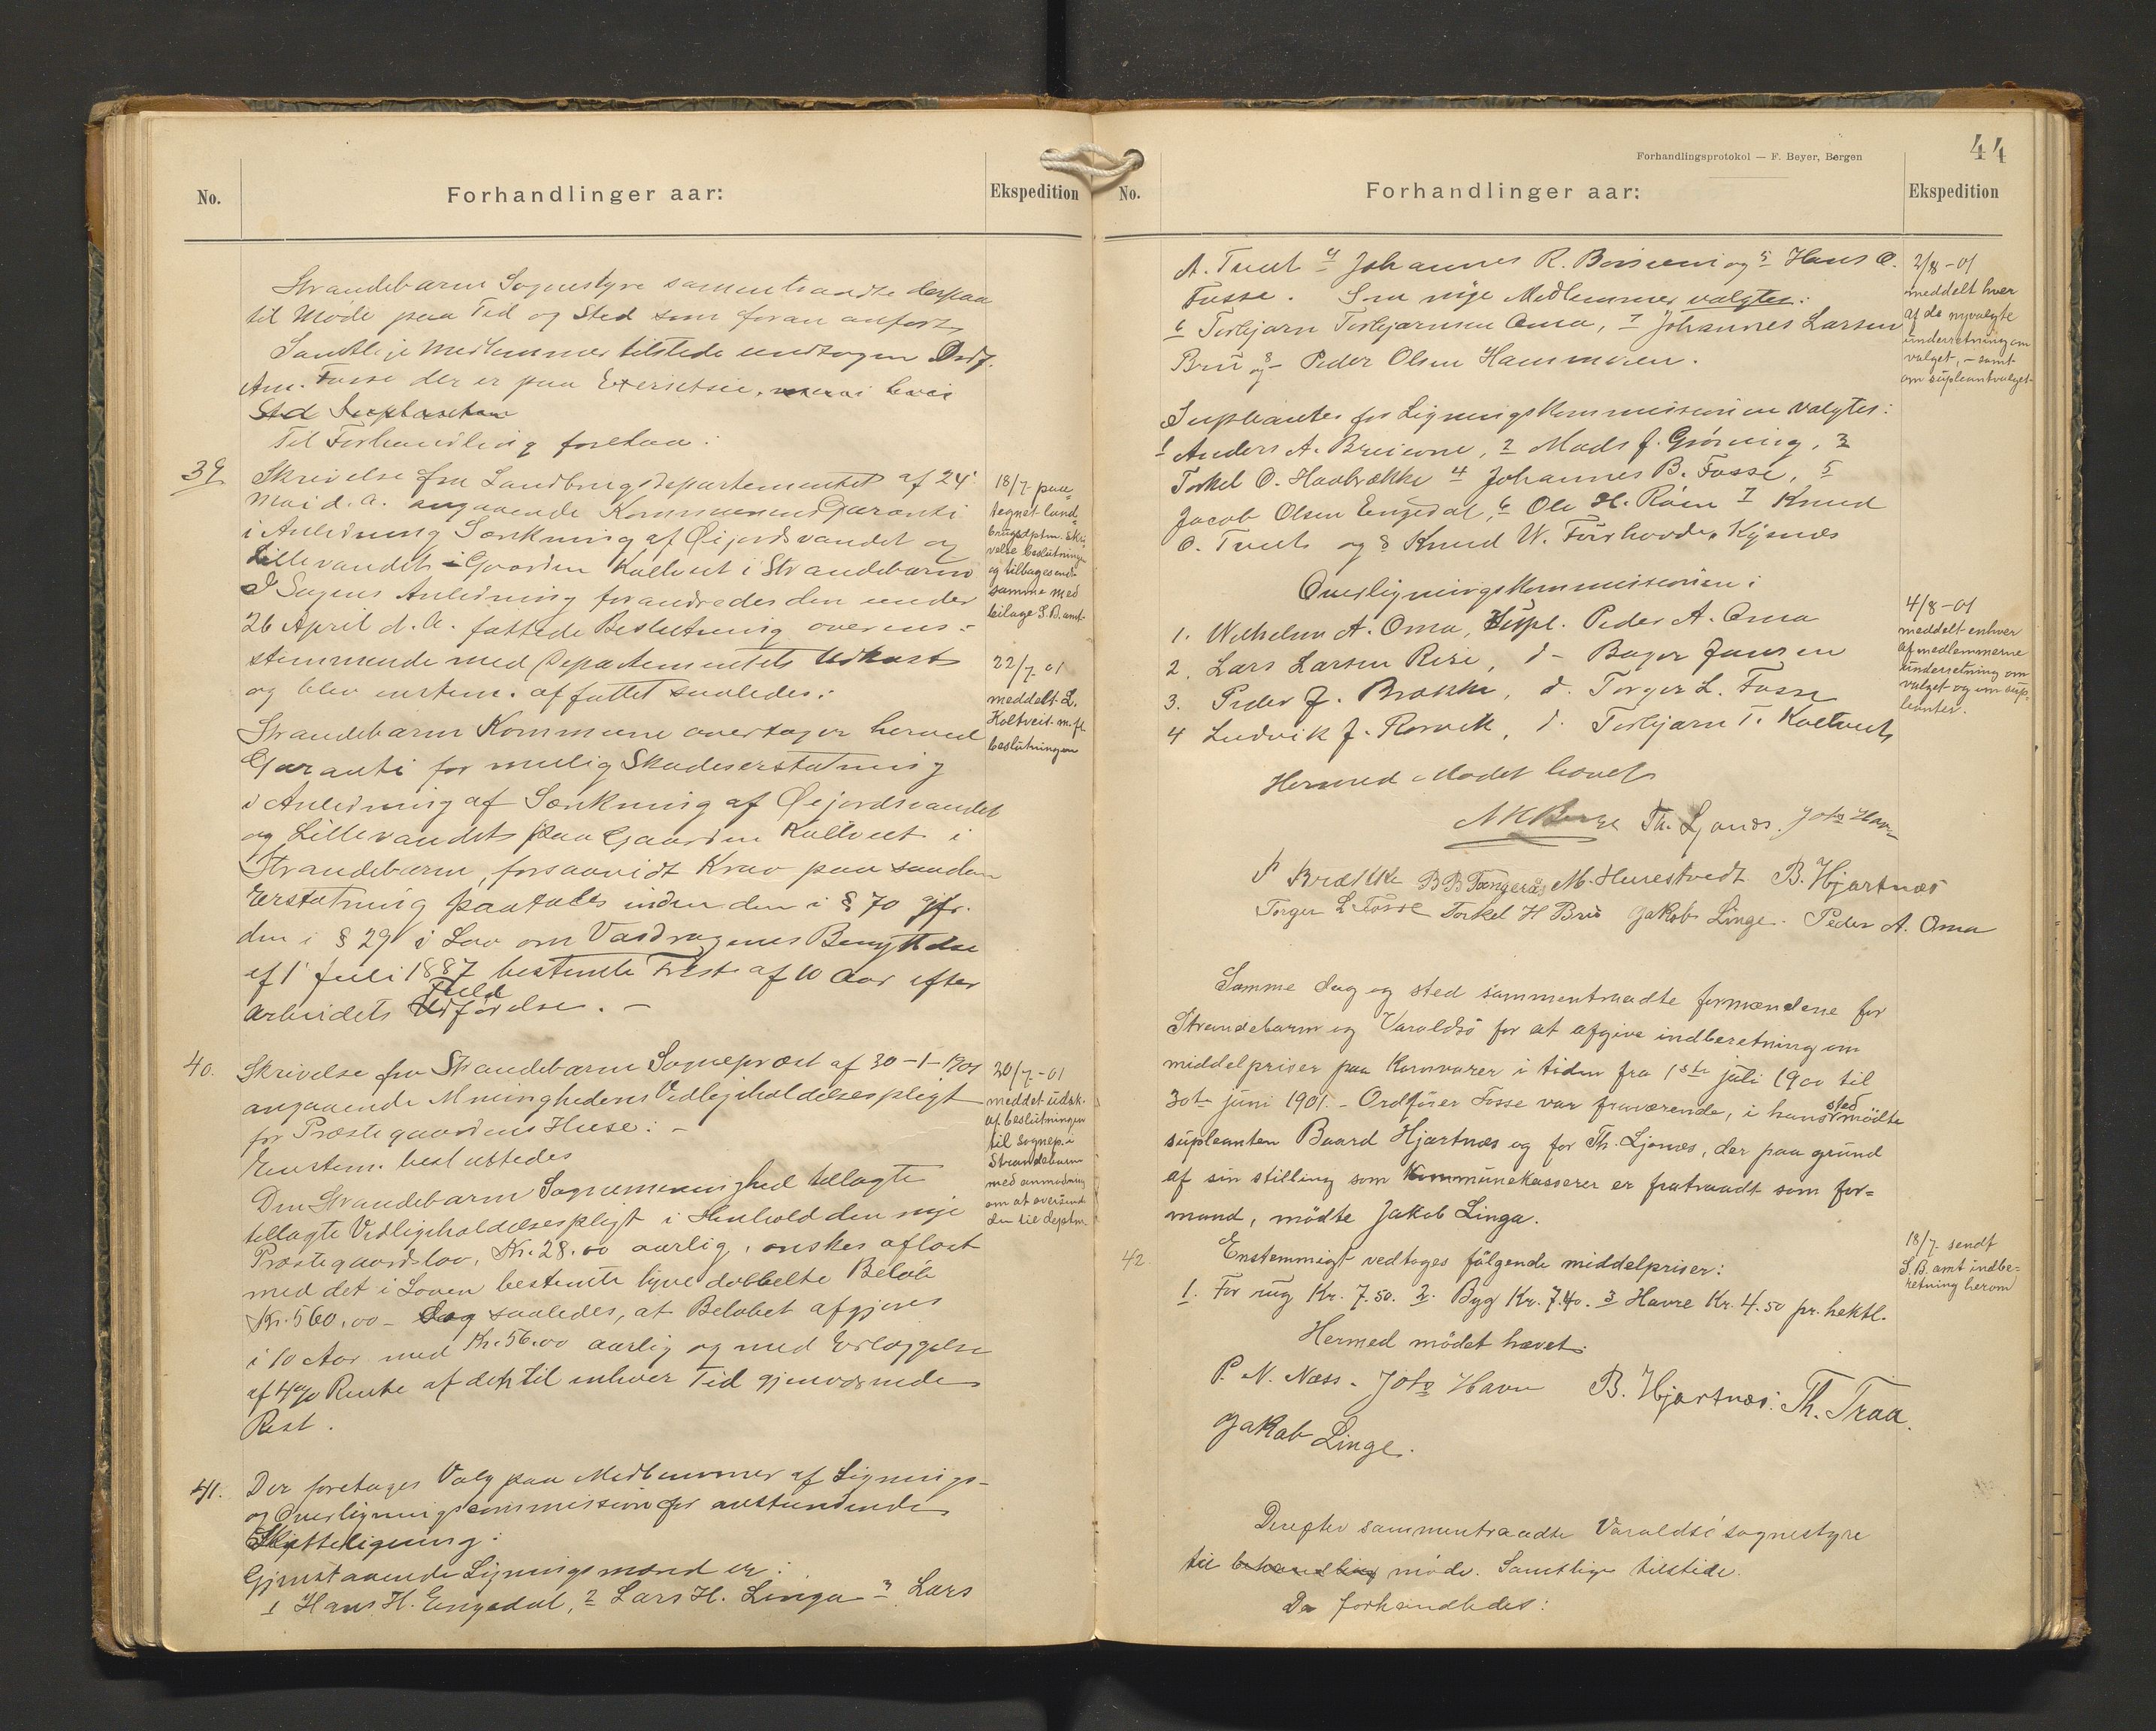 No.
Forhandlinger aar:
Ekspedition
Strandebarm Sognestyre sammentraadte derpaa
til Møde paa Tid og Sted som foran anført
Samtlige Medlemmer tilstede undtagen Ordf.
Am. Fosse der er paa Exersitsie,
Sted Suplanten
Til Forhandling foretaa:
39. Skrivelse fra Landbrugsdepartementet af 24'
Mai d. A. angaaende Kommunens Garanti
i Anledning Sænkning af Øijordsvandet og
Lillevandet i Gaarden Koltveit i Strandebarm
I Sagens Anledning forandredes den under
26 April d. A. fattede Beslutning overens-
stemmende med Departementets Udkast
og blev enstem. affattet saaledes:
Strandebarm Kommune overtager herved
Garanti for mulig Skadeserstatning
i Anledning af Sænkning af Øijordsvandet
og Lillevandet paa Gaarden Koltveit i
Strandebarm, forsaavidt Krav paa saadan
Erstatning paatales inden den i § 70 jfr.
den i § 29 i Lov om Vasdragenes Benyttelse
af 1' Juli 1887 bestemte Frist af 10 Aar efter
Arbeidets Fuldførelse. -
18/7 paa-
tegnet land-
brugsdptm. skri
velse beslutningen
og tilbagesendt
samme med
bilage S.B. amt.
22/7 01
meddelt L.
Koltveit m. fl.
beslutningen
40. Skrivelse fra Strandebarm Sogneprest af 30-1-1901
angaaende Menighedens Vedligeholdelsespligt
for Præstegaardens Huse: -
Enstem. besluttedes
Den Strandebarm Sognemenighed tillagte
tillagte Vedligeholdelsespligt i Henhold den nye
Præstegaardslov, Kr. 28.00 aarlig, ønskes afløst
med det i Loven bestemte tyvedobbelte Beløb
Kr. 560.00 - Dog saaledes, at Beløbet afgjøres
i 10 Aar med Kr. 56.00 aarlig og med Erlæggelse
af 4% Rente af den til enhver Tid gjenværende
Rest.
20/7-01
meddelt udsk.
af beslutningen
til sognep. i
Strandebarm
med anmodning
om at oversende
den til deptm.
41. Der foretages Valg paa Medlemmer af Lignings-
og Overligningscommission for anstundende
Skatteligning:
Gjenstaaende Ligningsmænd er:
1 Hans H. Engedal, 2 Lars H. Linga 3 Lars
44
Forhandlingsprotokol — F. Beyer, Bergen
No.
Forhandlinger aar:
Ekspedition
A. Tveit 4 Johannes R. og 5 Hans O.
Fosse. Som nye Medlemmer valgtes:
6 Torbjørn Torbjørnsen Oma, 7 Johannes Larsen
Bru og 8 Peder Olsen Hammeren.
2/8-01
meddelt hver
af de nyvalgte
underretning om
valget, - samt
om supleantvalget
Supleanter for Ligningskommissionen valgtes:
1 Anders A. Breivne, 2 Mads J. Grøning, 3
Torkel O. Haabrække 4 Johannes B. Fosse, 5
Jacob Olsen Engedal, 6 Ole H. Røen 7 Knud
O. Tveit og 8 Knud W. Førhovde, Kysnes
Overligningskommissionen:
1. Wilhelm A. Oma, Supl. Peder A. Oma
2. Lars Larsen Rise, d- Bager Jansen
3. Peder J. Brække, d. Torger L. Fosse
4 Ludvik J. Rørvik, d. Torbjørn T. Koltveit
4/8-01
meddelt enhver
af medlemmerne
underretning om
valget og om sup-
leanter.
Hermed Mødet hævet
N K Berge Th. Ljones. Johs Havn
P Brække B B Tangerås M. Hurestvedt B. Hjartnæs
Torger L Fosse Torkel H Bru Jakob Linge. Peder A. Oma
Samme dag og sted sammentraadte formændene for
Strandebarm og Varaldsö for at afgive indberetning om
middelpriser paa kornvarer i tiden fra 1ste juli 1900 til
30te juni 1901. - Ordfører Fosse var fraværende, i hans sted mödte
supleanten Baard Hjartnæs og for Th. Ljones, der paa grund
af sin stilling som kommunekasserer er fratraadt som for-
mand, mödte Jakob Linga.
42. Enstemmigt vedtoges fölgende middelpriser:
1. For rug Kr. 7.50. 2. Byg Kr. 7.40. 3 Havre Kr. 4.50 pr. hektl.
Hermed mödet hævet.
18/7 sendt
S. B. amt indbe-
retning herom
P. N. Næss. Johs Havn B. Hjartnæs. Th. Traa.
Jakob Linge.
Derefter sammentraadte Varaldsö sognestyre
til behandling møde. Samtlige tilstede.
Da forhandledes: